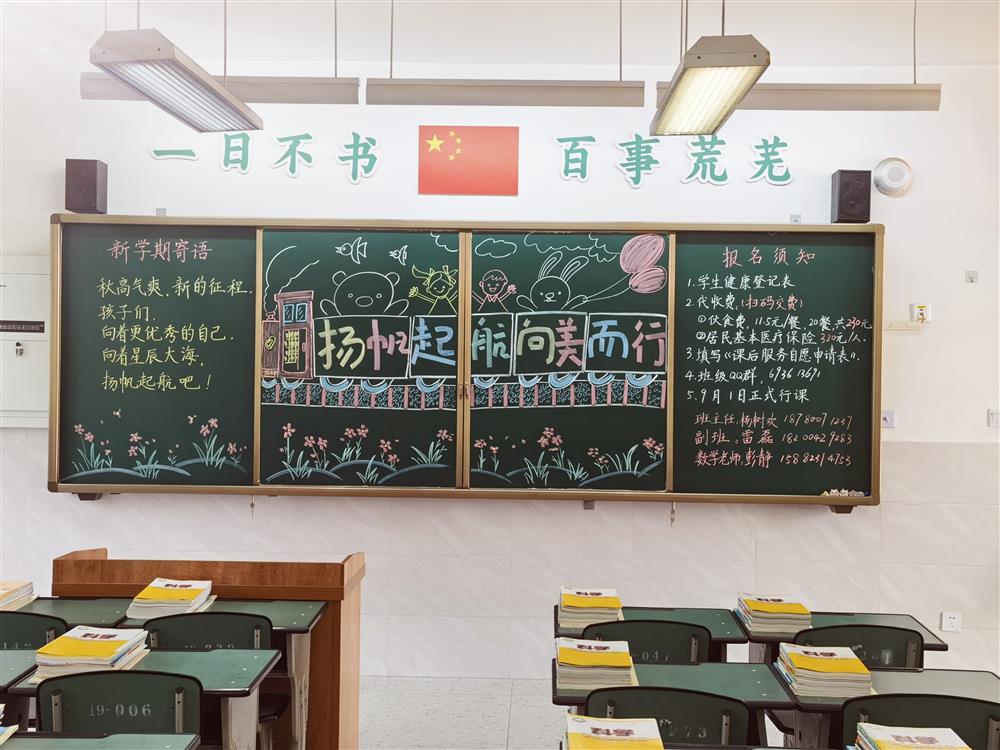 一日不书 百事荒芜
新学期寄语
秋高气爽,新的征程,
孩子们,
向着更优秀的自己,
向着星辰大海,
扬帆起航吧!
扬帆起航向美而行
报名须知
1.学生健康登记表
2.代收费,(扫码交费)
①伙食费,11.5元/餐,20餐,共230元
②居民基本医疗保险320元/人.
3.填写《课后服务自愿申请表》.
4.班级QQ群,693613691
5.9月1日正式行课
班主任:杨树欢 18780071237
副班:雷磊 18200429283
数学老师:彭静
科学
科学
19-006
047
科学
科学